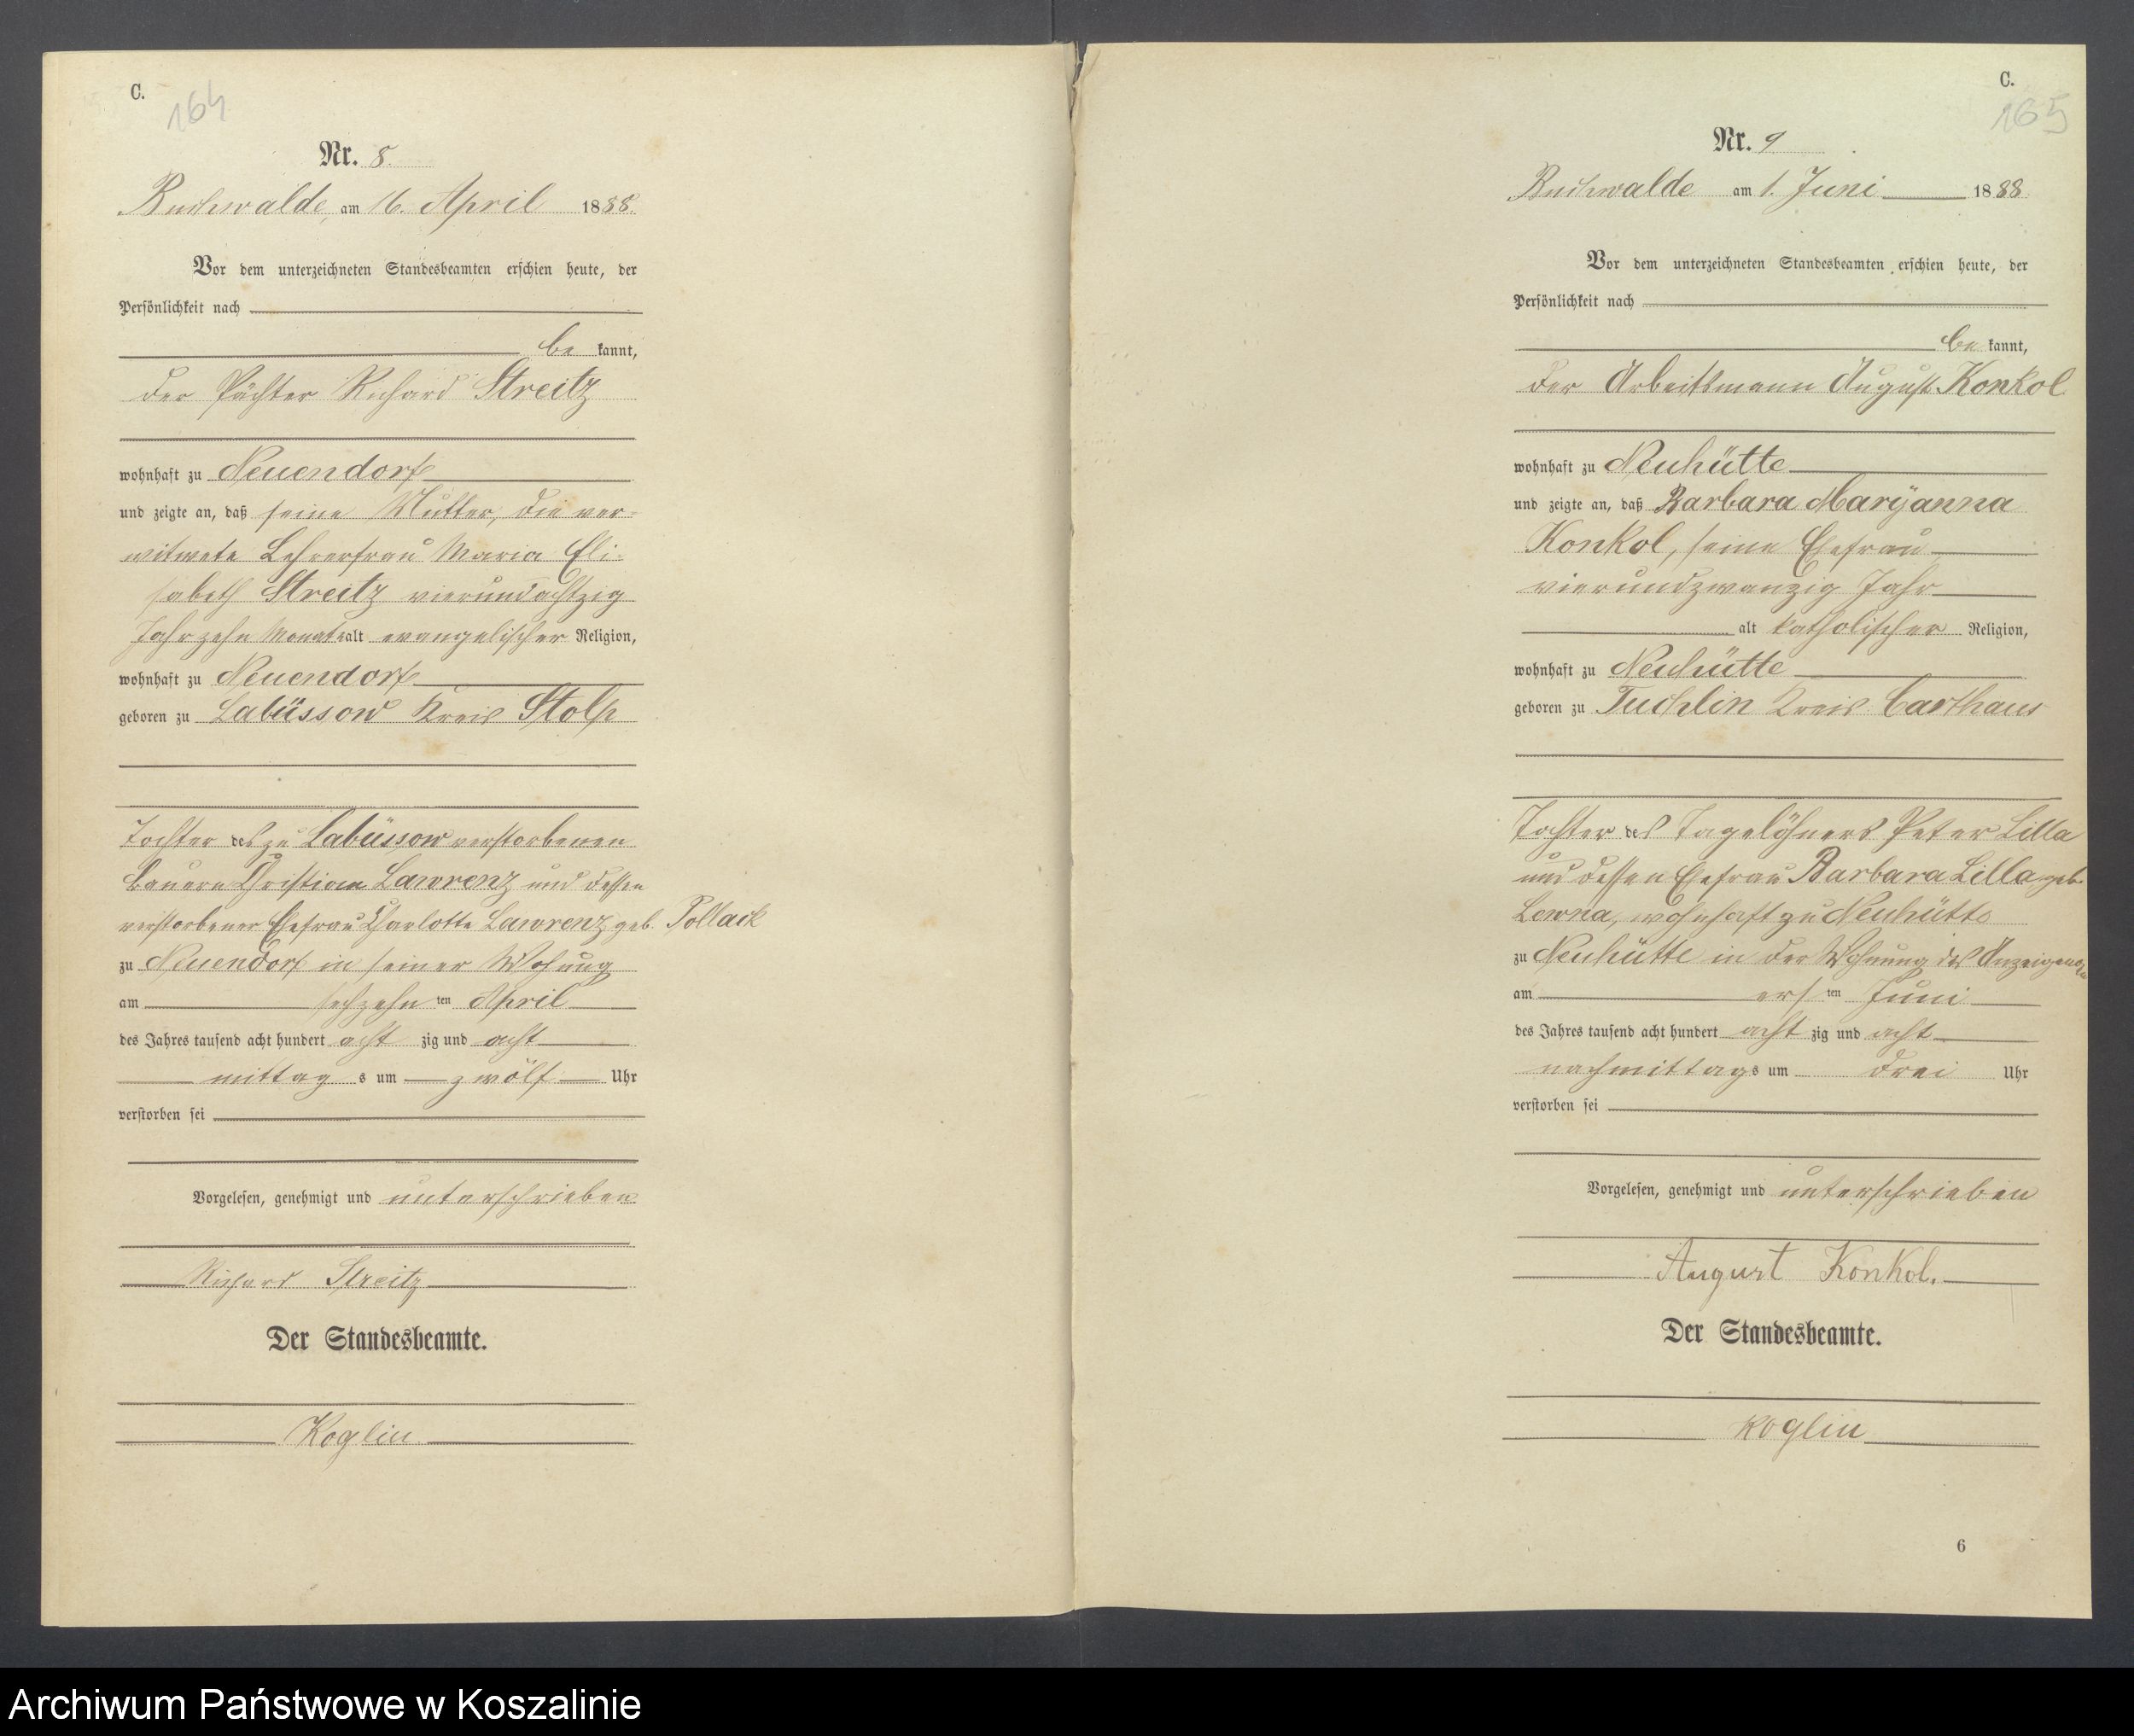 C.
164
Nr. 8.
Buchwalde, am 16. April 1888.
Vor dem unterzeichneten Standesbeamten erschien heute, der
Persönlichkeit nach
be kannt,
der Pächter Richard Streitz
wohnhaft zu Neuendorf
und zeigte an, daß seine Mutter, die ver-
witwete Lehrerfrau Maria Eli-
sabeth Streitz vierundachtzig
Jahr zehn Monate alt evangelischer Religion,
wohnhaft zu Neuendorf
geboren zu Labüssow Kreis Stolp
Tochter des zu Labüssow verstorbenen
Bauern Christian Lawrenz und dessen
verstorbener Ehefrau Charlotte Lawrenz geb. Pollack
zu Neuendorf in seiner Wohnung
am sechzehn ten April
des Jahres tausend acht hundert acht zig und acht
mittag s um zwölf Uhr
verstorben sei
Vorgelesen, genehmigt und unterschrieben
Richard Streitz
Der Standesbeamte.
Koglin
C.
165
Nr. 9
Buchwalde am 1. Juni 1888
Vor dem unterzeichneten Standesbeamten erschien heute, der
Persönlichkeit nach
be kannt,
der Arbeitsmann August Konkol
wohnhaft zu Neuhütte
und zeigte an, daß Barbara Maryanna
Konkol, seine Ehefrau
vierundzwanzig Jahr
alt katholischer Religion,
wohnhaft zu Neuhütte
geboren zu Tuchlin Kreis Carthaus
Tochter des Tagelöhners Peter Lilla
und dessen Ehefrau Barbara Lilla geb.
Lewna, wohnhaft zu Neuhütte
zu Neuhütte in der Wohnung des Anzeigenden
am ers ten Juni
des Jahres tausend acht hundert acht zig und acht
nachmittag s um drei Uhr
verstorben sei
Vorgelesen, genehmigt und unterschrieben
August Konkol.
Der Standesbeamte.
Koglin
6
Archiwum Państwowe w Koszalinie